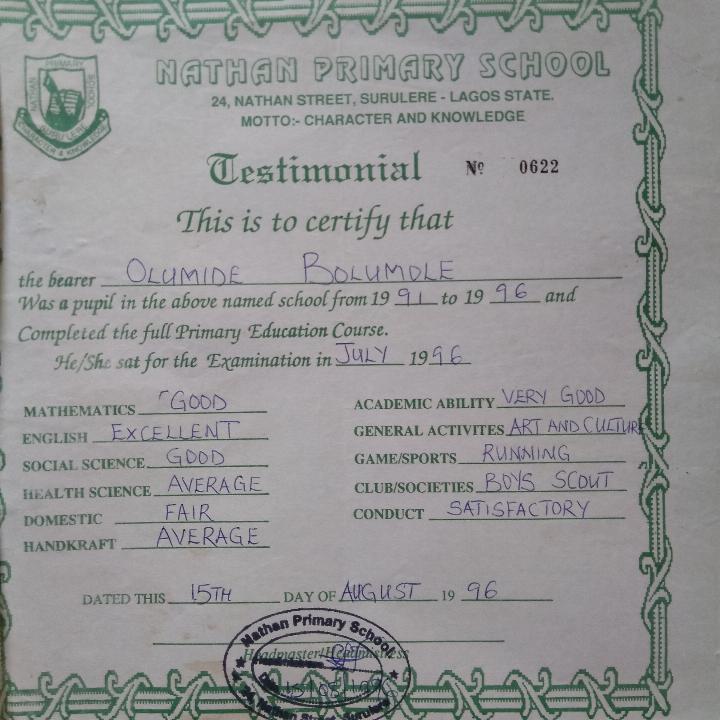 PRIMARY
NATHAN
SCHOOL
SURULERE
CHARACTER & KNOWLEDGE
NATHAN PRIMARY SCHOOL
24, NATHAN STREET, SURULERE - LAGOS STATE.
MOTTO:- CHARACTER AND KNOWLEDGE
Testimonial Nº 0622
This is to certify that
the bearer OLUMIDE BOLUMOLE
Was a pupil in the above named school from 19 91 to 19 96 and
Completed the full Primary Education Course.
He/She sat for the Examination in JULY 1996
MATHEMATICS GOOD
ENGLISH EXCELLENT
SOCIAL SCIENCE GOOD
HEALTH SCIENCE AVERAGE
DOMESTIC FAIR
HANDKRAFT AVERAGE
ACADEMIC ABILITY VERY GOOD
GENERAL ACTIVITES ART AND CULTURE
GAME/SPORTS RUNNING
CLUB/SOCIETIES BOYS SCOUT
CONDUCT SATISFACTORY
DATED THIS 15TH DAY OF AUGUST 19 96
Headmaster/Headmistress
Nathan Primary School
24, Nathan Street, Surulere